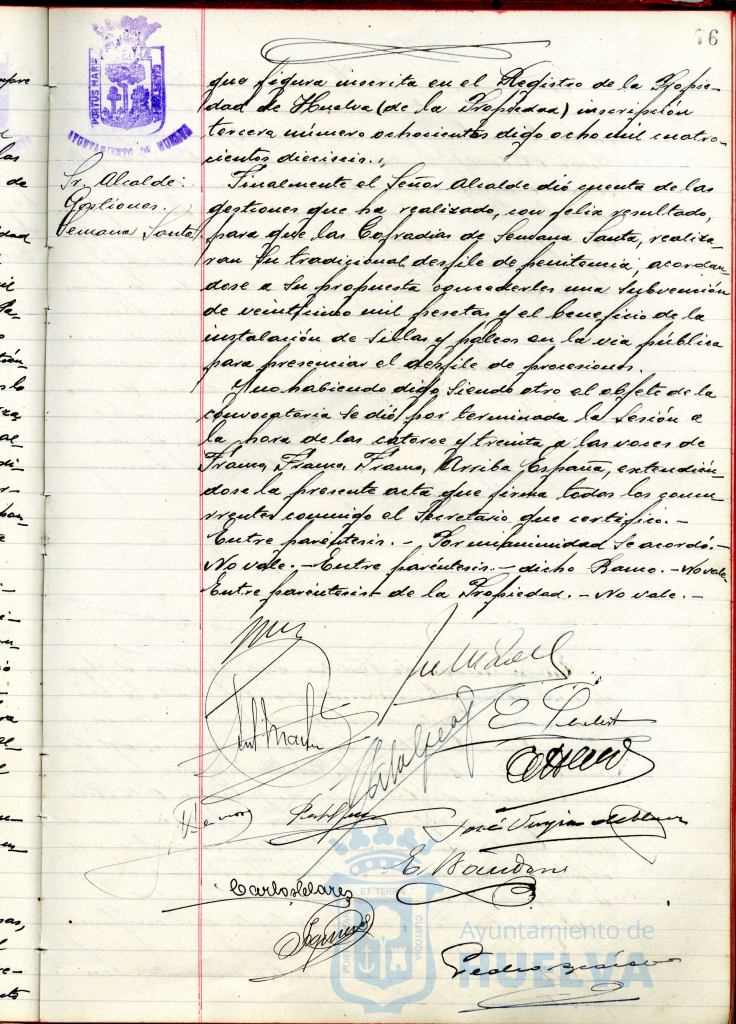 76
PORTUS MARIS
AYUNTAMIENTO DE HUELVA
que figura inscrita en el Registro de la Propie-
dad de Huelva (de la Propiedad) inscripción
tercera número ochocientos digo ocho mil cuatro-
cientos dieciseis.,
Sr. Alcalde:
Gestiones.
Semana Santa
Finalmente el Señor Alcalde dió cuenta de las
gestiones que ha realizado, con feliz resultado,
para que las Cofradias de Semana Santa, realiza-
ran su tradicional desfile de penitencia, acordan-
dose a su propuesta concederles una subvención
de veinticinco mil pesetas y el beneficio de la
instalación de sillas y palcos en la via pública
para presenciar el desfile de procesiones.
Y no habiendo digo siendo otro el objeto de la
convocatoria se dió por terminada la sesión a
la hora de las catorce y treinta a las voces de
Franco, Franco, Franco, Arriba España, extendién-
dose la presente acta que firma todos los concu
rrentes conmigo el Secretario que certifico.-
Entre paréntesis.- Por unanimidad se acordó.-
No vale.- Entre paréntesis.- dicho Ramo.- No vale
Entre paréntesis- de la Propiedad.- No vale.-
José
Carlos
Pedro
ET TERRE
PORTUS MARIS
CUSTODIA
Ayuntamiento de
HUELVA